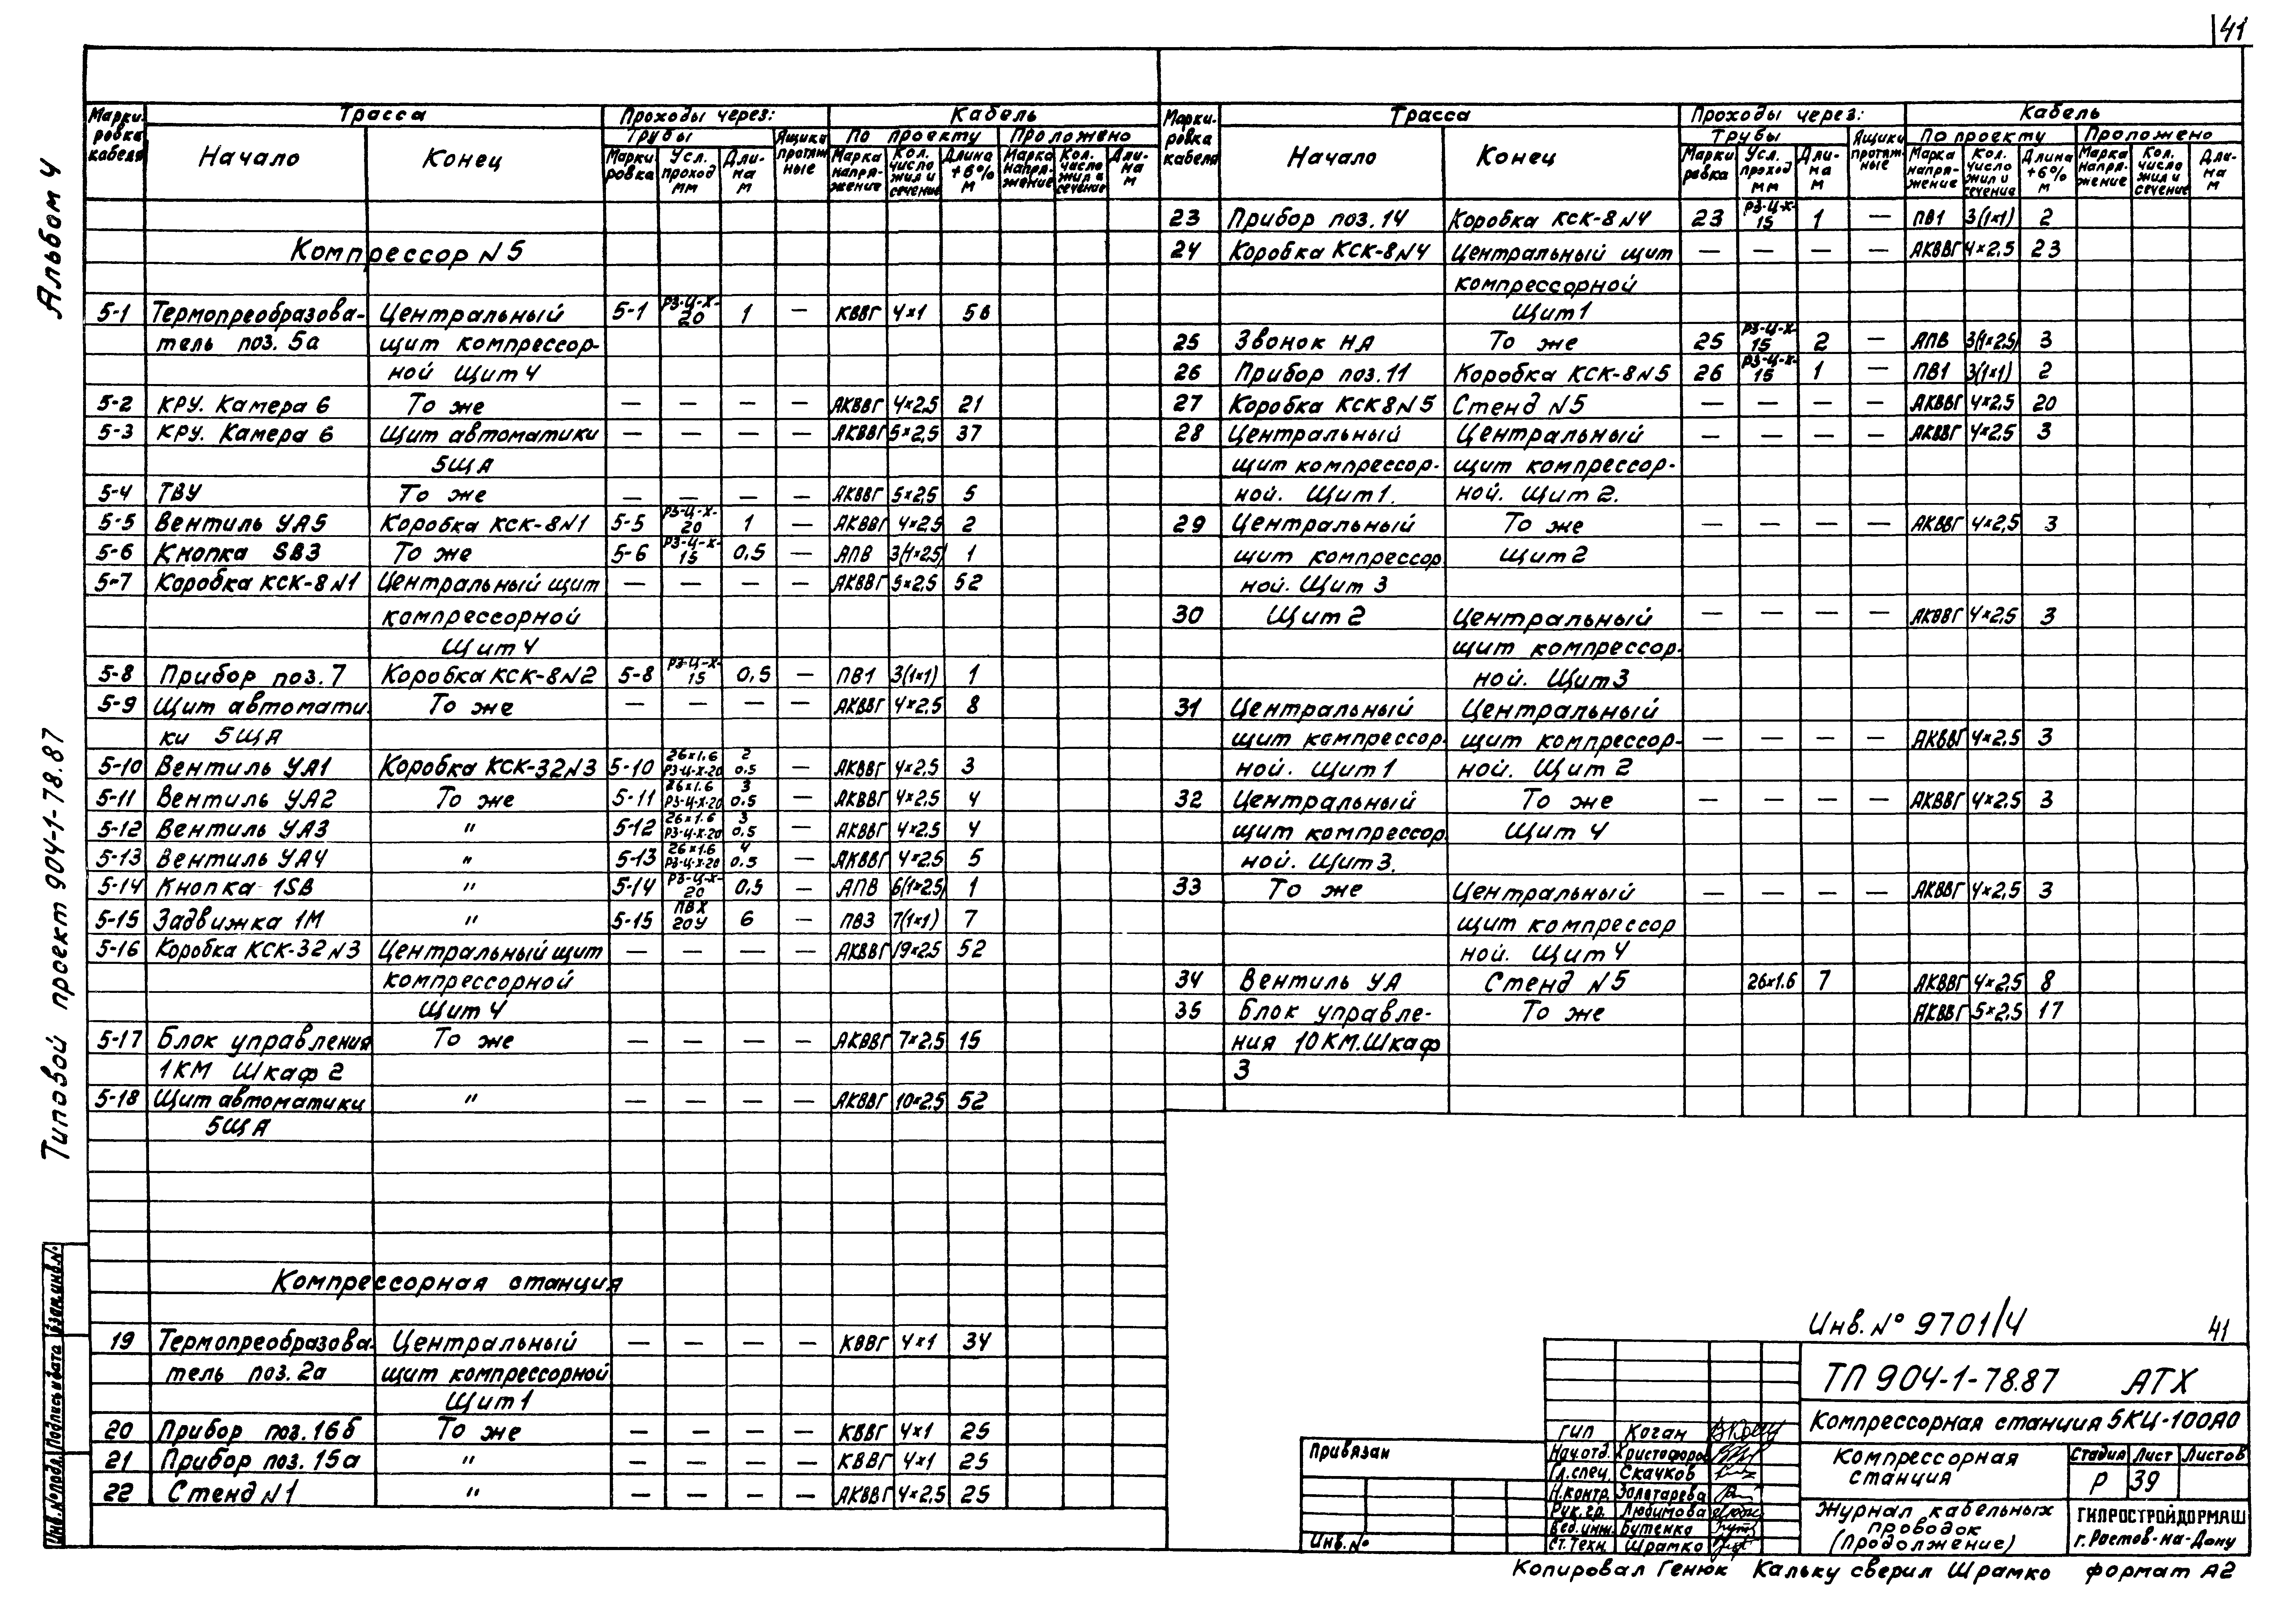 41
Альбом 4
Типовой проект 904-1-78.87
Марки- ровка кабеля
Трасса
Начало
Конец
Проходы через:
Трубы
Марки ровка
Усл. проход мм
Дли- на м
Ящики протяж ные
Кабель
По проекту
Проложено
Марка напря- жение
Кол. число жил и сечение
Длина +6% м
Марка напря- жение
Кол. число жил и сечение
Дли- на м
Компрессор N5
5-1 Термопреобразова- Центральный 5-1 РЗ-Ц-Х-20 1 — КВВГ 4×1 56
тель поз. 5а щит компрессор-
ной Щит 4
5-2 КРУ. Камера 6 То же — — — — АКВВГ 4×2,5 21
5-3 КРУ. Камера 6 Щит автоматики — — — — АКВВГ 5×2,5 37
5ЩА
5-4 ТВУ То же — — — — АКВВГ 5×2,5 5
5-5 Вентиль УА5 Коробка КСК-8N1 5-5 РЗ-Ц-Х-20 1 — АКВВГ 4×2,5 2
5-6 Кнопка SB3 То же 5-6 РЗ-Ц-Х-15 0,5 — АПВ 3(1×2,5) 1
5-7 Коробка КСК-8N1 Центральный щит — — — — АКВВГ 5×2,5 52
компрессорной
Щит 4
5-8 Прибор поз. 7 Коробка КСК-8N2 5-8 РЗ-Ц-Х-15 0,5 — ПВ1 3(1×1) 1
5-9 Щит автомати- То же — — — — АКВВГ 4×2,5 8
ки 5ЩА
5-10 Вентиль УА1 Коробка КСК-32N3 5-10 26×1.6 2 РЗ-Ц-Х-20 0.5 — АКВВГ 4×2,5 3
5-11 Вентиль УА2 То же 5-11 26×1.6 3 РЗ-Ц-Х-20 0.5 — АКВВГ 4×2,5 4
5-12 Вентиль УА3 " 5-12 26×1.6 3 РЗ-Ц-Х-20 0.5 — АКВВГ 4×2,5 4
5-13 Вентиль УА4 " 5-13 26×1.6 4 РЗ-Ц-Х-20 0.5 — АКВВГ 4×2,5 5
5-14 Кнопка 1SB " 5-14 РЗ-Ц-Х-20 0,5 — АПВ 6(1×2,5) 1
5-15 Задвижка 1М " 5-15 ПВХ 20У 6 — ПВ3 7(1×1) 7
5-16 Коробка КСК-32N3 Центральный щит — — — — АКВВГ 19×2,5 52
компрессорной
Щит 4
5-17 Блок управления То же — — — — АКВВГ 7×2,5 15
1КМ Шкаф 2
5-18 Щит автоматики " — — — — АКВВГ 10×2,5 52
5ЩА
Компрессорная станция
19 Термопреобразова- Центральный — — — — КВВГ 4×1 34
тель поз. 2а щит компрессорной
Щит 1
20 Прибор поз. 16б То же — — — — КВВГ 4×1 25
21 Прибор поз. 15а " — — — — КВВГ 4×1 25
22 Стенд N1 " — — — — АКВВГ 4×2,5 25
Марки- ровка кабеля
Трасса
Начало
Конец
Проходы через:
Трубы
Марки ровка
Усл. проход мм
Дли- на м
Ящики протяж- ные
Кабель
По проекту
Проложено
Марка напря- жение
Кол. число жил и сечение
Длина +6% м
Марка напря- жение
Кол. число жил и сечение
Дли- на м
23 Прибор поз. 14 Коробка КСК-8N4 23 РЗ-Ц-Х-15 1 — ПВ1 3(1×1) 2
24 Коробка КСК-8N4 Центральный щит — — — — АКВВГ 4×2,5 23
компрессорной
Щит 1
25 Звонок НА То же 25 РЗ-Ц-Х-15 2 — АПВ 3(1×2,5) 3
26 Прибор поз. 11 Коробка КСК-8N5 26 РЗ-Ц-Х-15 1 — ПВ1 3(1×1) 2
27 Коробка КСК8N5 Стенд N5 — — — — АКВВГ 4×2,5 20
28 Центральный Центральный — — — — АКВВГ 4×2,5 3
щит компрессор- щит компрессор-
ной. Щит 1. ной. Щит 2.
29 Центральный То же — — — — АКВВГ 4×2,5 3
щит компрессор Щит 2
ной. Щит 3
30 Щит 2 Центральный — — — — АКВВГ 4×2,5 3
щит компрессор-
ной. Щит 3
31 Центральный Центральный
щит компрессор- щит компрессор- — — — — АКВВГ 4×2,5 3
ной. Щит 1 ной. Щит 2
32 Центральный То же — — — — АКВВГ 4×2,5 3
щит компрессор Щит 4
ной. Щит 3.
33 То же Центральный — — — — АКВВГ 4×2,5 3
щит компрессор
ной. Щит 4
34 Вентиль УА Стенд N5 26×1.6 7 АКВВГ 4×2,5 8
35 Блок управле- То же АКВВГ 5×2,5 17
ния 10КМ.Шкаф
3
Инв. № 9701/4 41
ТП 904-1-78.87 АТХ
Компрессорная станция 5КЦ-100А0
Компрессорная станция
Стадия Лист Листов
Р 39
Журнал кабельных проводок (Продолжение)
ГИПРОСТРОЙДОРМАШ
г. Ростов-на-Дону
ГИП Коган
Нач.отд. Христофоров
Гл.спец. Скачков
Н.контр. Золотарева
Рук.гр. Любимова
Вед.инж. Бутенко
Ст.техн. Шрамко
Привязан
Инв. №
Взам.инв.№
Подпись и дата
Инв.№ подл.
Копировал Генюк Кальку сверил Шрамко формат А2